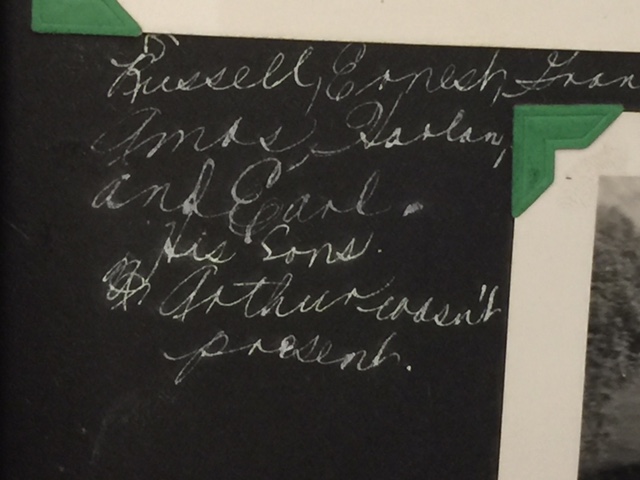 Russell, Ernest, Gran
Amos, Harlan,
and Earl.
His Sons.
Arthur wasn't
present.